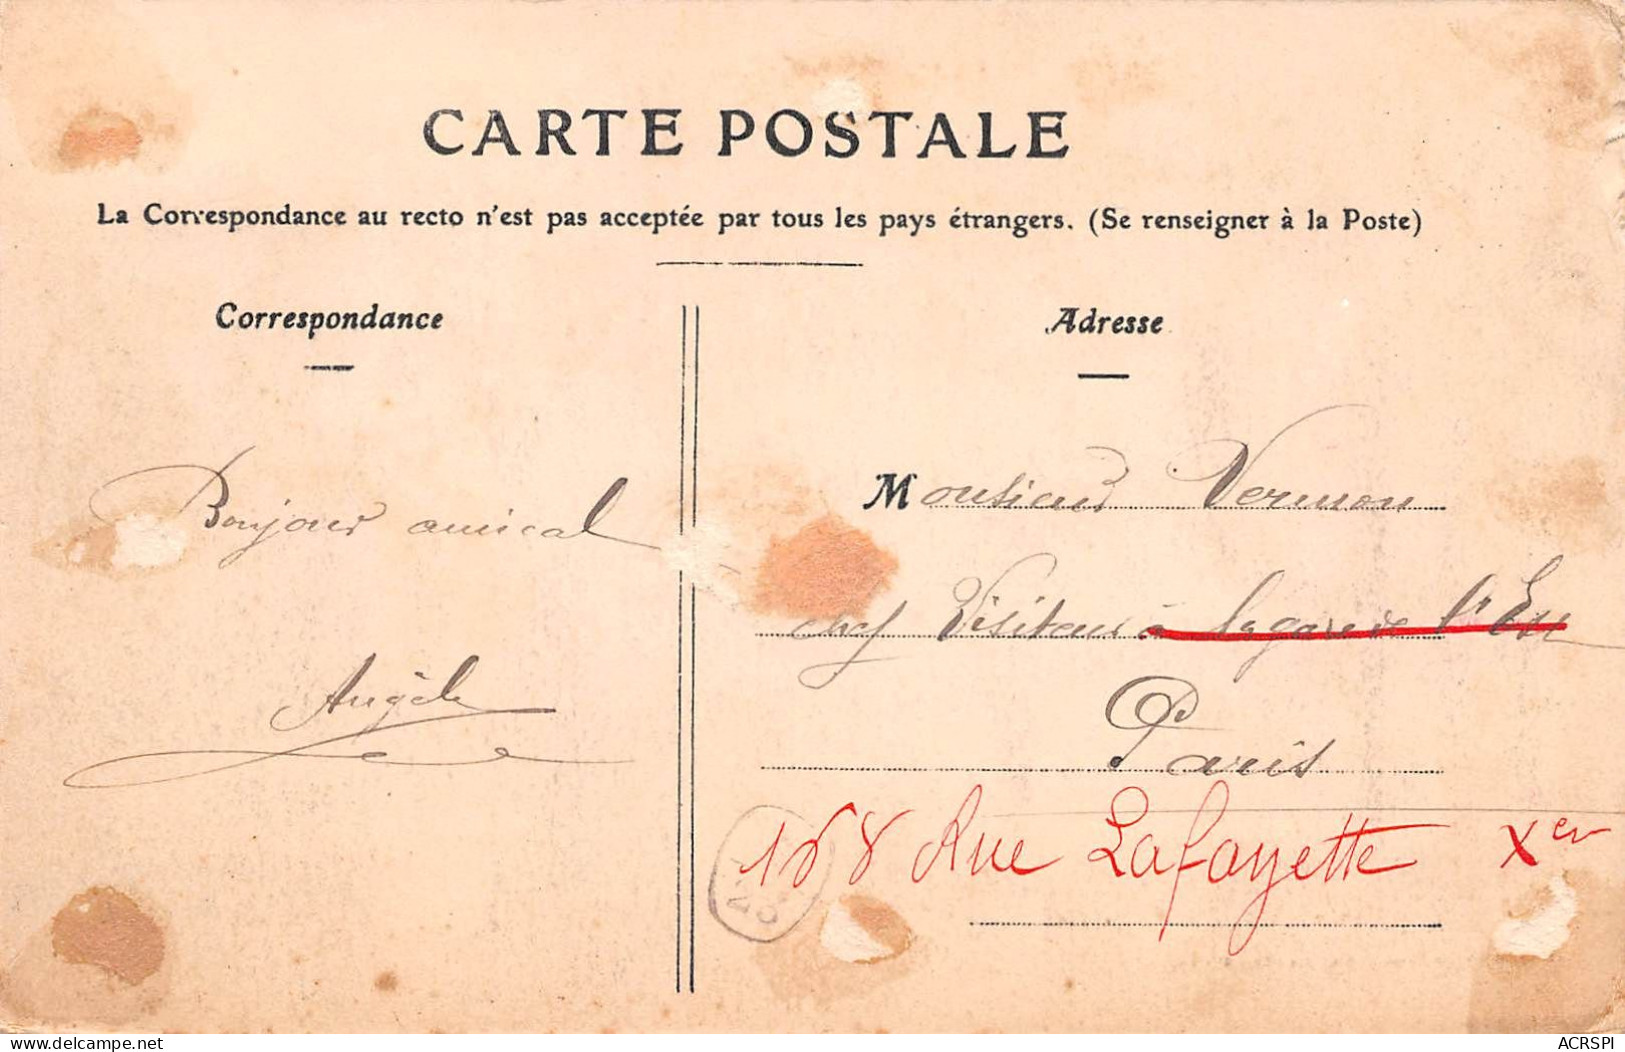 CARTE POSTALE
La Correspondance au recto n'est pas acceptée par tous les pays étrangers. (Se renseigner à la Poste)
Correspondance
Bonjour amical
Angèle
Adresse
Monsieur Vermon
chef Visiteur à la gare de l'Est
Paris
168 Rue Lafayette Xer
ACRSPI